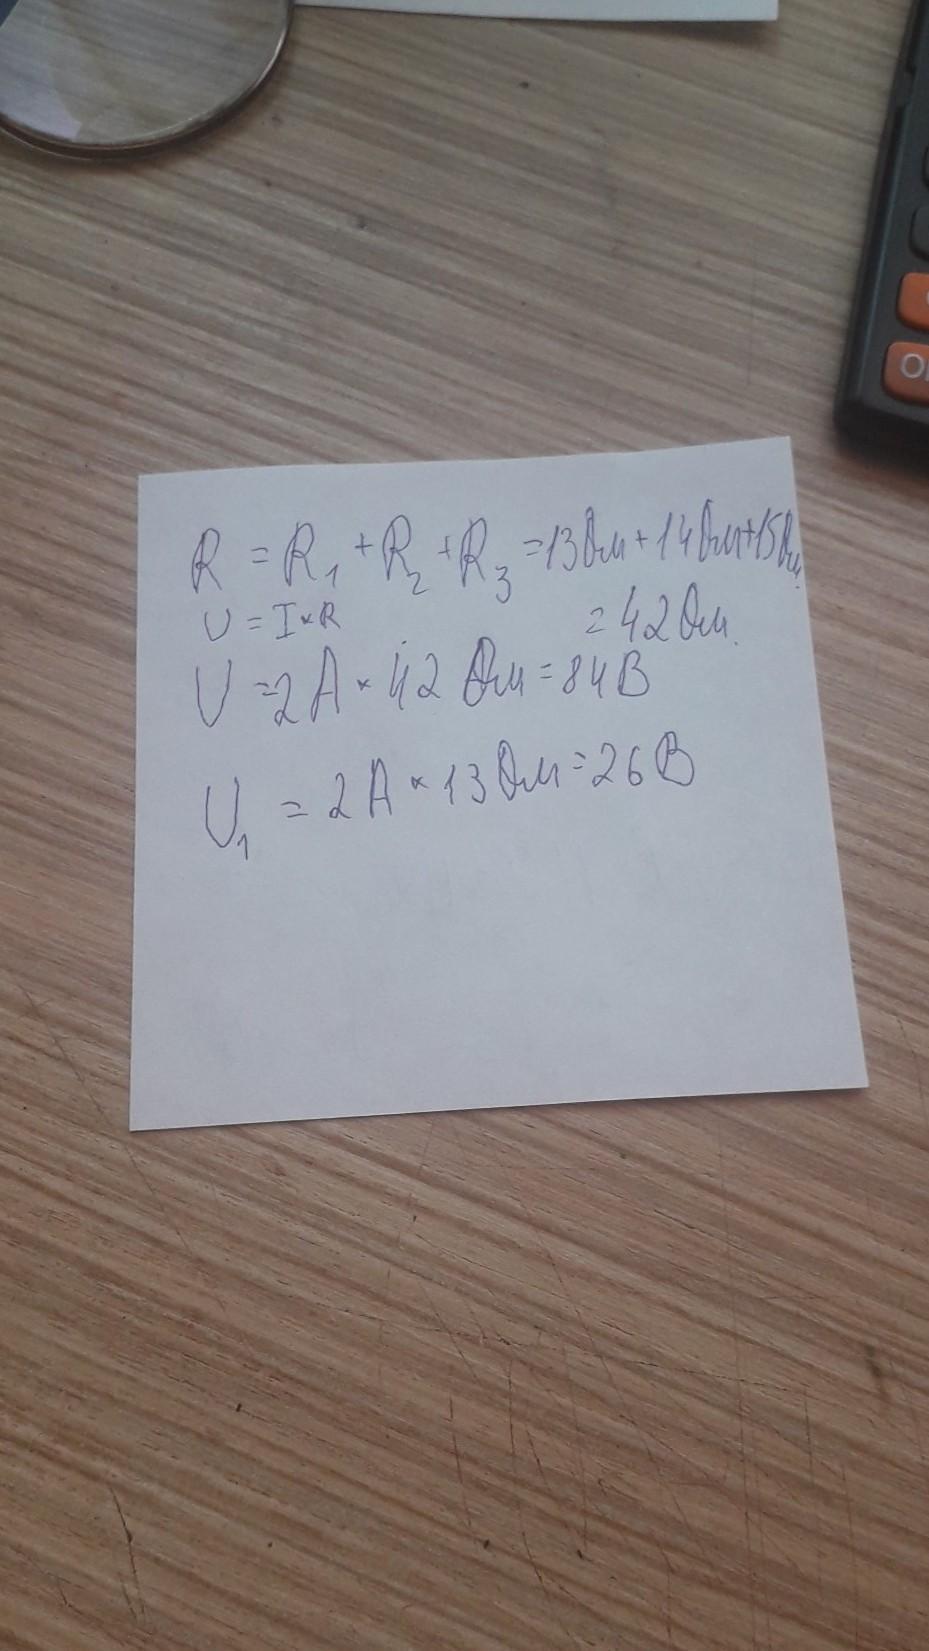 R = R₁ + R₂ + R₃ = 13 Ом + 14 Ом + 15 Ом
= 42 Ом.
U = I × R
U = 2 А × 42 Ом = 84 В
U₁ = 2 А × 13 Ом = 26 В